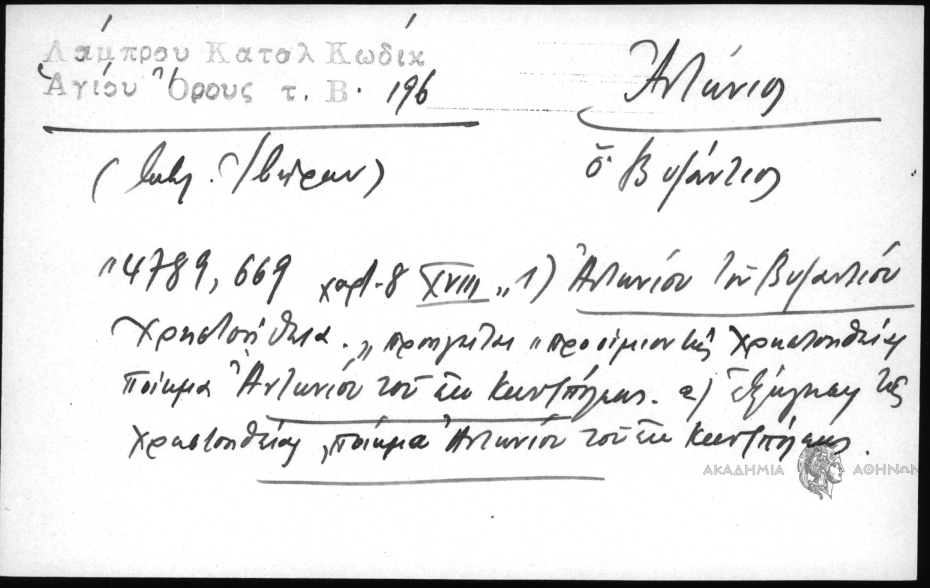 Λάμπρου Καταλ Κωδίκ
Ἁγίου Ὄρους τ. Β. 196
Ἀντώνιος
ὁ Βυζάντιος
(Μον. Ἰβήρων)
"4789, 669 χαρτ. 8 XVIII „ 1) Ἀντωνίου τοῦ Βυζαντίου
Χρηστοήθεια. „ προηγεῖται "προοίμιον τῆς Χρηστοηθείας
ποίημα Ἀντωνίου τοῦ ἐκ Κωνσπόλεως. 2) Ἐξήγησις τῆς
Χρηστοηθείας, ποίημα Ἀντωνίου τοῦ ἐκ Κωνσπόλεως.
ΑΚΑΔΗΜΙΑ ΑΘΗΝΩΝ